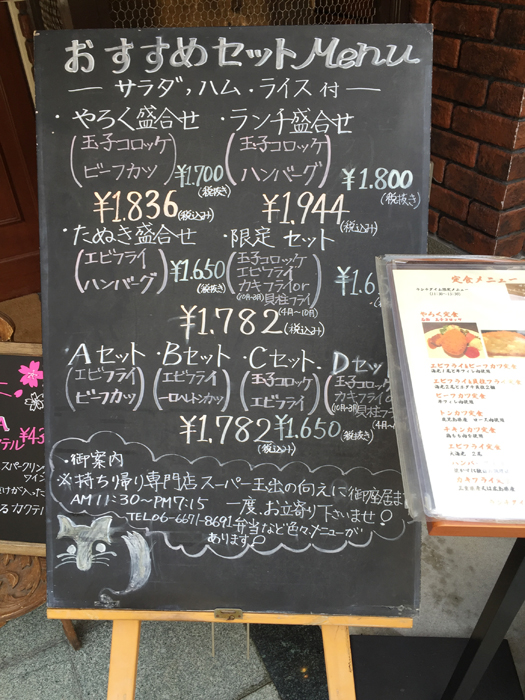 おすすめセットMenu
サラダ,ハム・ライス付
・やろく盛合せ
玉子コロッケ
ビーフカツ
¥1.700
(税抜き)
¥1.836(税込み)
・ランチ盛合せ
玉子コロッケ
ハンバーグ
¥1.800
(税抜き)
¥1.944(税込み)
・たぬき盛合せ
エビフライ
ハンバーグ
¥1.650
(税抜き)
・限定 セット
玉子コロッケ
エビフライ
カキフライor
(10月-3月)貝柱フライ
(4月〜10月)
¥1.6
¥1.782(税込み)
Aセット
エビフライ
ビーフカツ
・Bセット
エビフライ
一口ヘレカツ
・Cセット
玉子コロッケ
エビフライ
Dセッ
玉子コロッケ
カキフライ
貝柱フラ
¥1.782(税込み)
¥1.650
(税抜き)
・御案内
※持ち帰り専門店スーパー玉出の向えに御座居ま
AM11:30〜PM7:15 一度、お立寄り下さいませ!
TEL06-6671-8691
弁当など色々メニューが
あります。
定食メニュー
やろく定食
エビフライ&ビーフカツ定食
エビフライ&貝柱フライ定食
ビーフカツ定食
トンカツ定食
チキンカツ定食
エビフライ定食
ハンバ
カキフライ